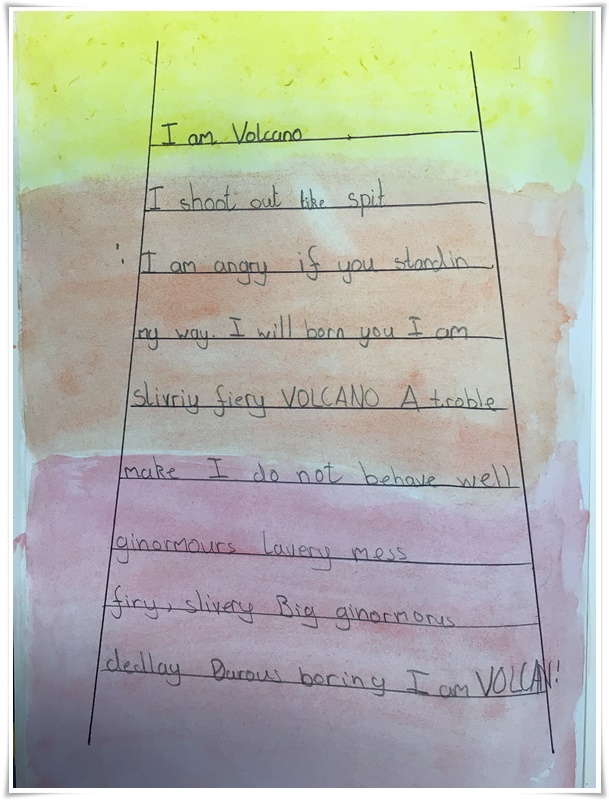 I am Volcano
I shoot out like spit
I am angry if you standin
my way. I will born you I am
slivriy fiery VOLCANO A troble
make I do not behave well
ginormours lavery mess
firy, slivery Big ginormorus
dedlay Darous boring I am VOLCAN!